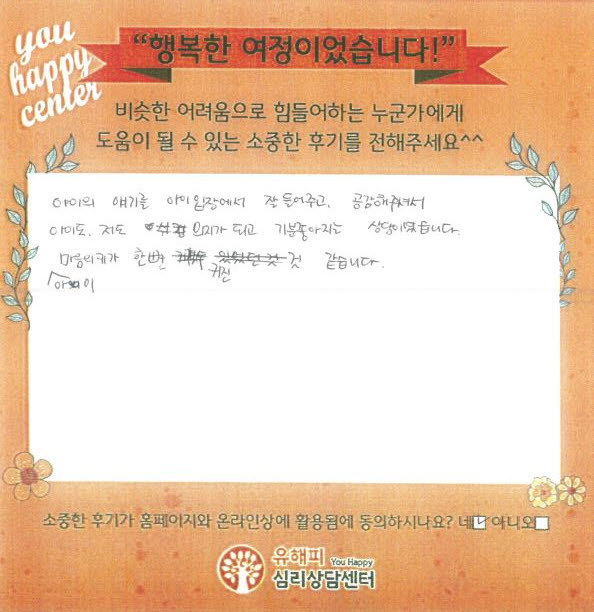 you
happy
center
“행복한 여정이었습니다!”
비슷한 어려움으로 힘들어하는 누군가에게
도움이 될 수 있는 소중한 후기를 전해주세요^^
아이의 얘기를 아이 입장에서 잘 들어주고, 공감해주셔서
아이도, 저도 의지가 되고 기분좋아지는 상담이었습니다.
마음의키가 한뼘 것 같습니다.
커진
소중한 후기가 홈페이지와 온라인상에 활용됨에 동의하시나요? 네 아니오
유해피 You Happy
심리상담센터